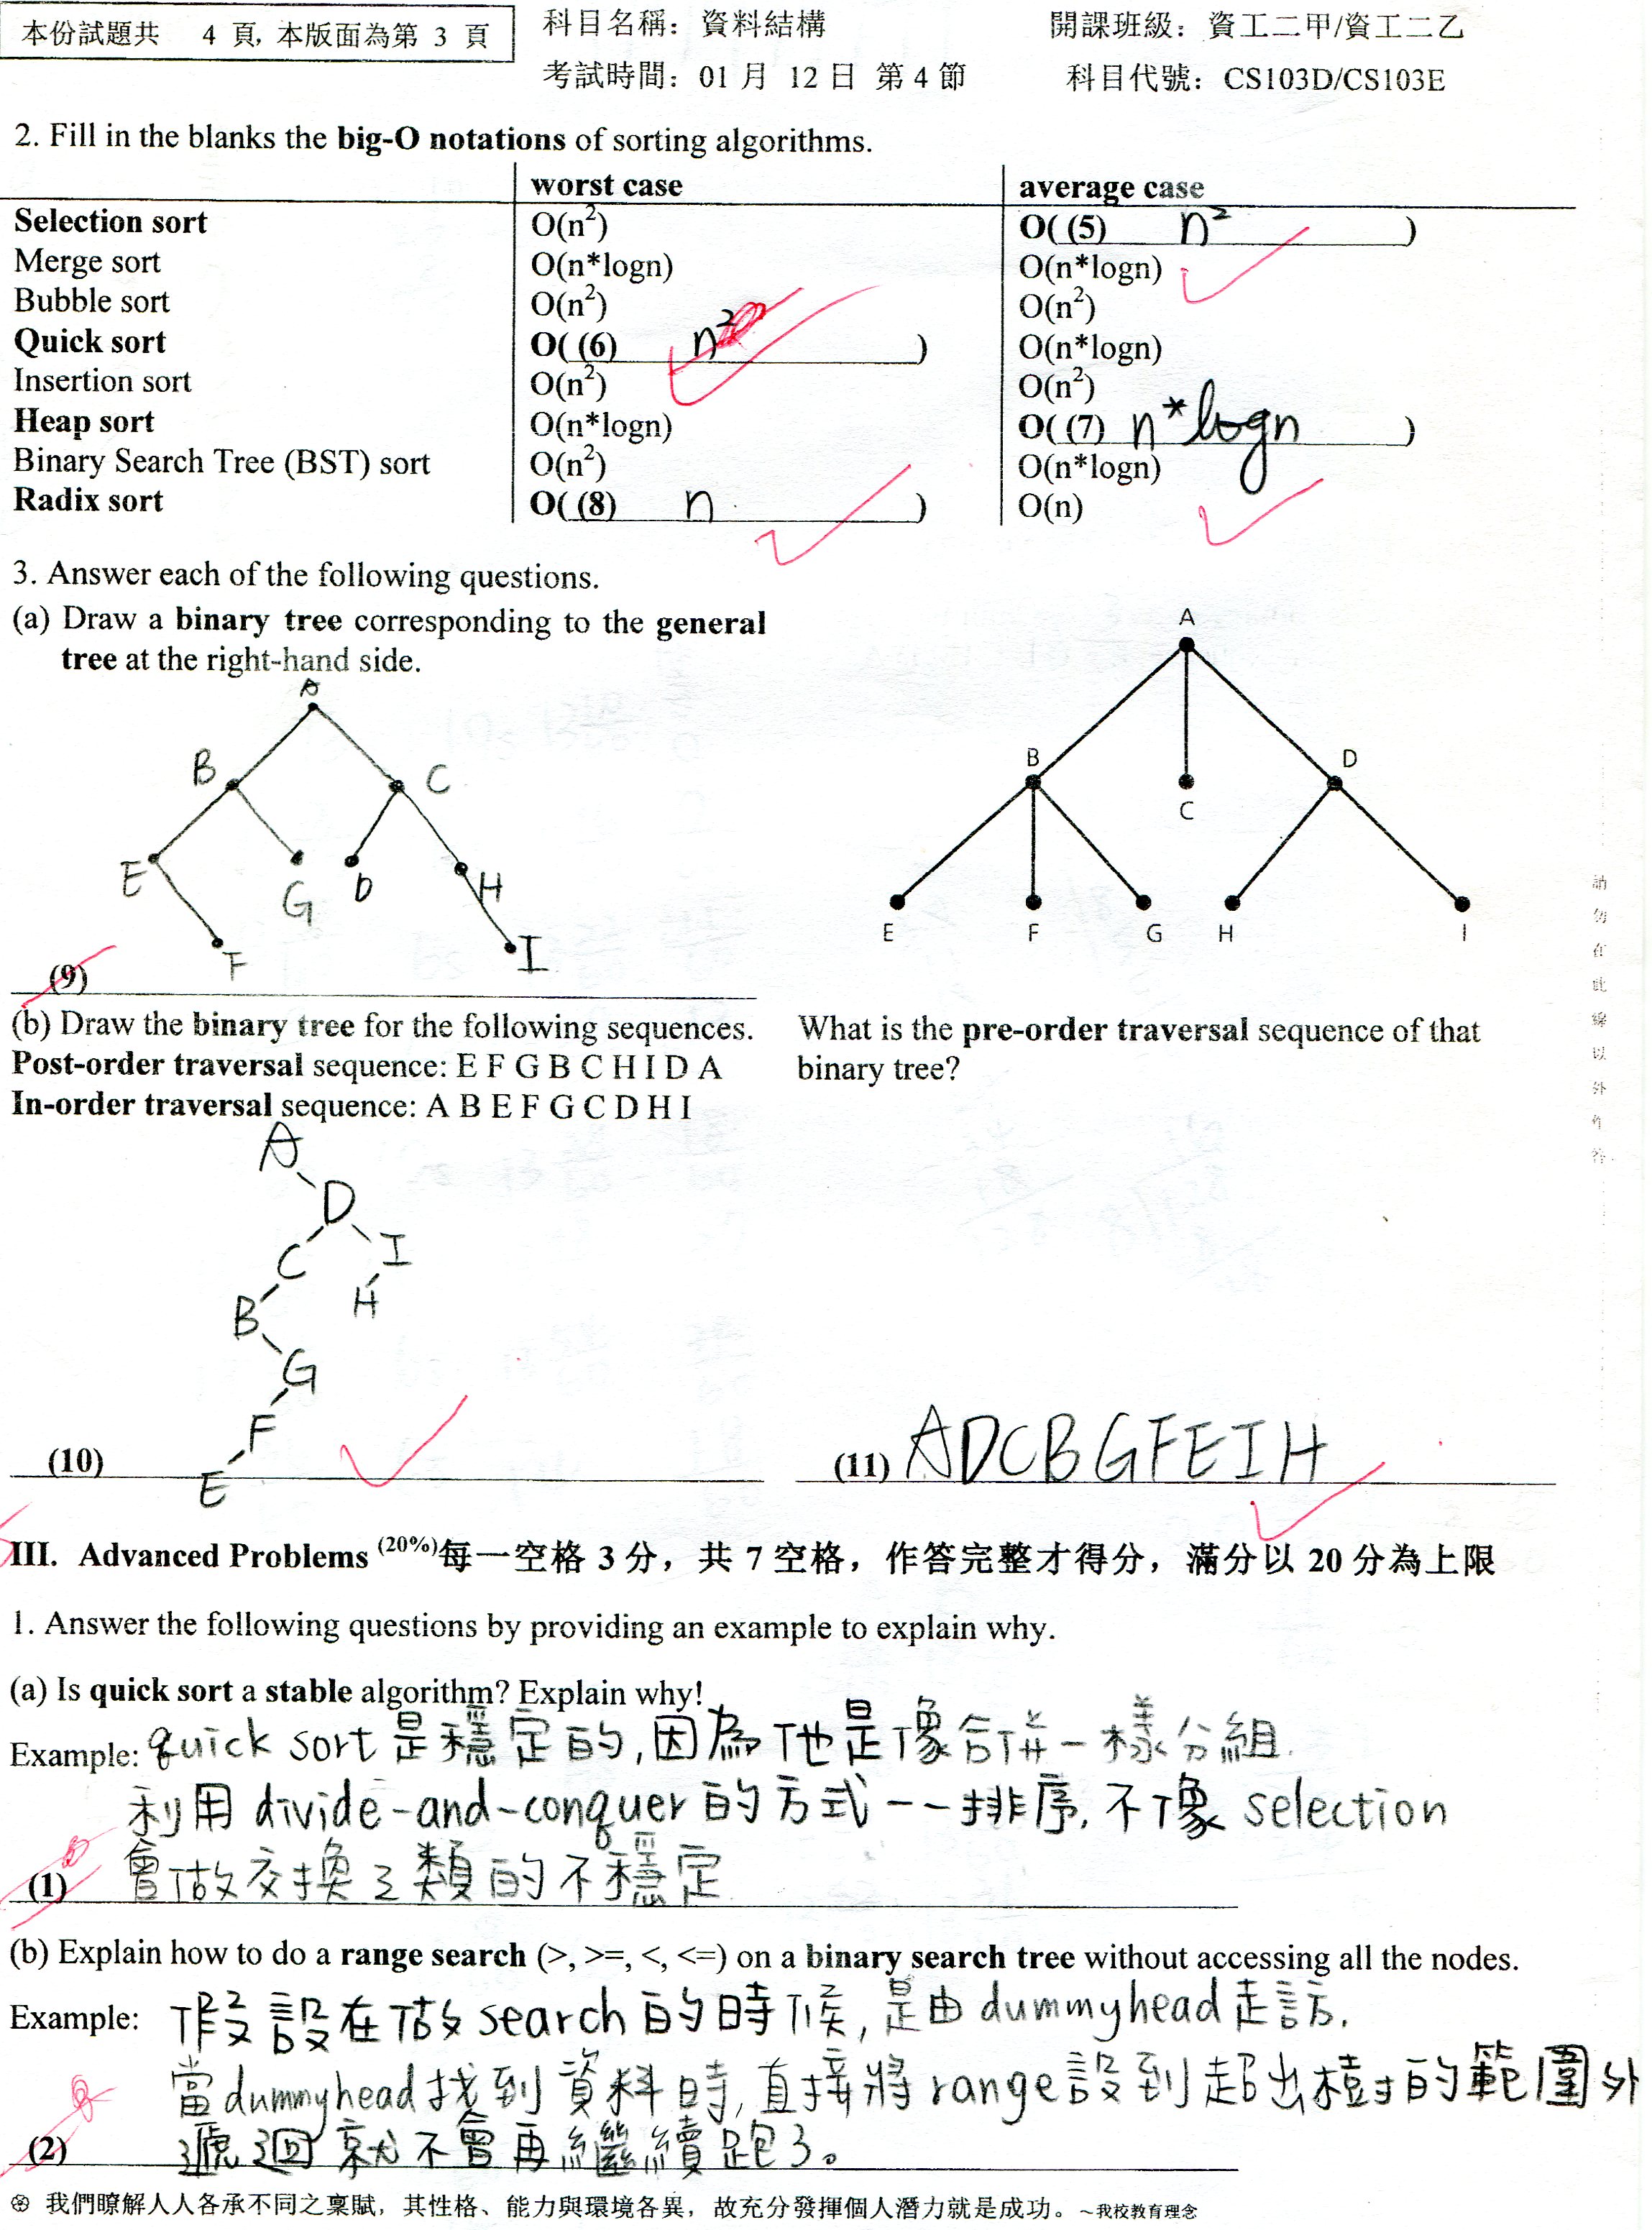 本份試題共 4 頁, 本版面為第 3 頁
科目名稱：資料結構
開課班級：資工二甲/資工二乙
考試時間：01 月 12 日 第 4 節
科目代號：CS103D/CS103E
2. Fill in the blanks the big-O notations of sorting algorithms.
worst case average case
Selection sort O(n²) O( (5) n² )
Merge sort O(n*logn) O(n*logn)
Bubble sort O(n²) O(n²)
Quick sort O( (6) n² ) O(n*logn)
Insertion sort O(n²) O(n²)
Heap sort O(n*logn) O( (7) n*logn )
Binary Search Tree (BST) sort O(n²) O(n*logn)
Radix sort O( (8) n ) O(n)
3. Answer each of the following questions.
(a) Draw a binary tree corresponding to the general
tree at the right-hand side.
A
B C
E G D H
F I
(9)
A
B D
C
E F G H I
(b) Draw the binary tree for the following sequences.
Post-order traversal sequence: E F G B C H I D A
In-order traversal sequence: A B E F G C D H I
What is the pre-order traversal sequence of that
binary tree?
A
D
C I
B H
G
F
E
(10)
(11) ADCBGFEIH
III. Advanced Problems (20%)每一空格 3 分，共 7 空格，作答完整才得分，滿分以 20 分為上限
1. Answer the following questions by providing an example to explain why.
(a) Is quick sort a stable algorithm? Explain why!
Example: quick sort 是穩定的,因為他是像合併一樣分組.
利用 divide-and-conquer 的方式一一排序, 不像 selection
(1) 會做交換之類的不穩定
(b) Explain how to do a range search (>, >=, <, <=) on a binary search tree without accessing all the nodes.
Example: 假設在做 search 的時候, 是由 dummyhead 走訪,
當 dummyhead 找到資料時, 直接將 range 設到超出樹的範圍外
(2) 遞迴就不會再繼續跑了。
⊛ 我們瞭解人人各承不同之稟賦，其性格、能力與環境各異，故充分發揮個人潛力就是成功。~我校教育理念
請勿在此線以外作答